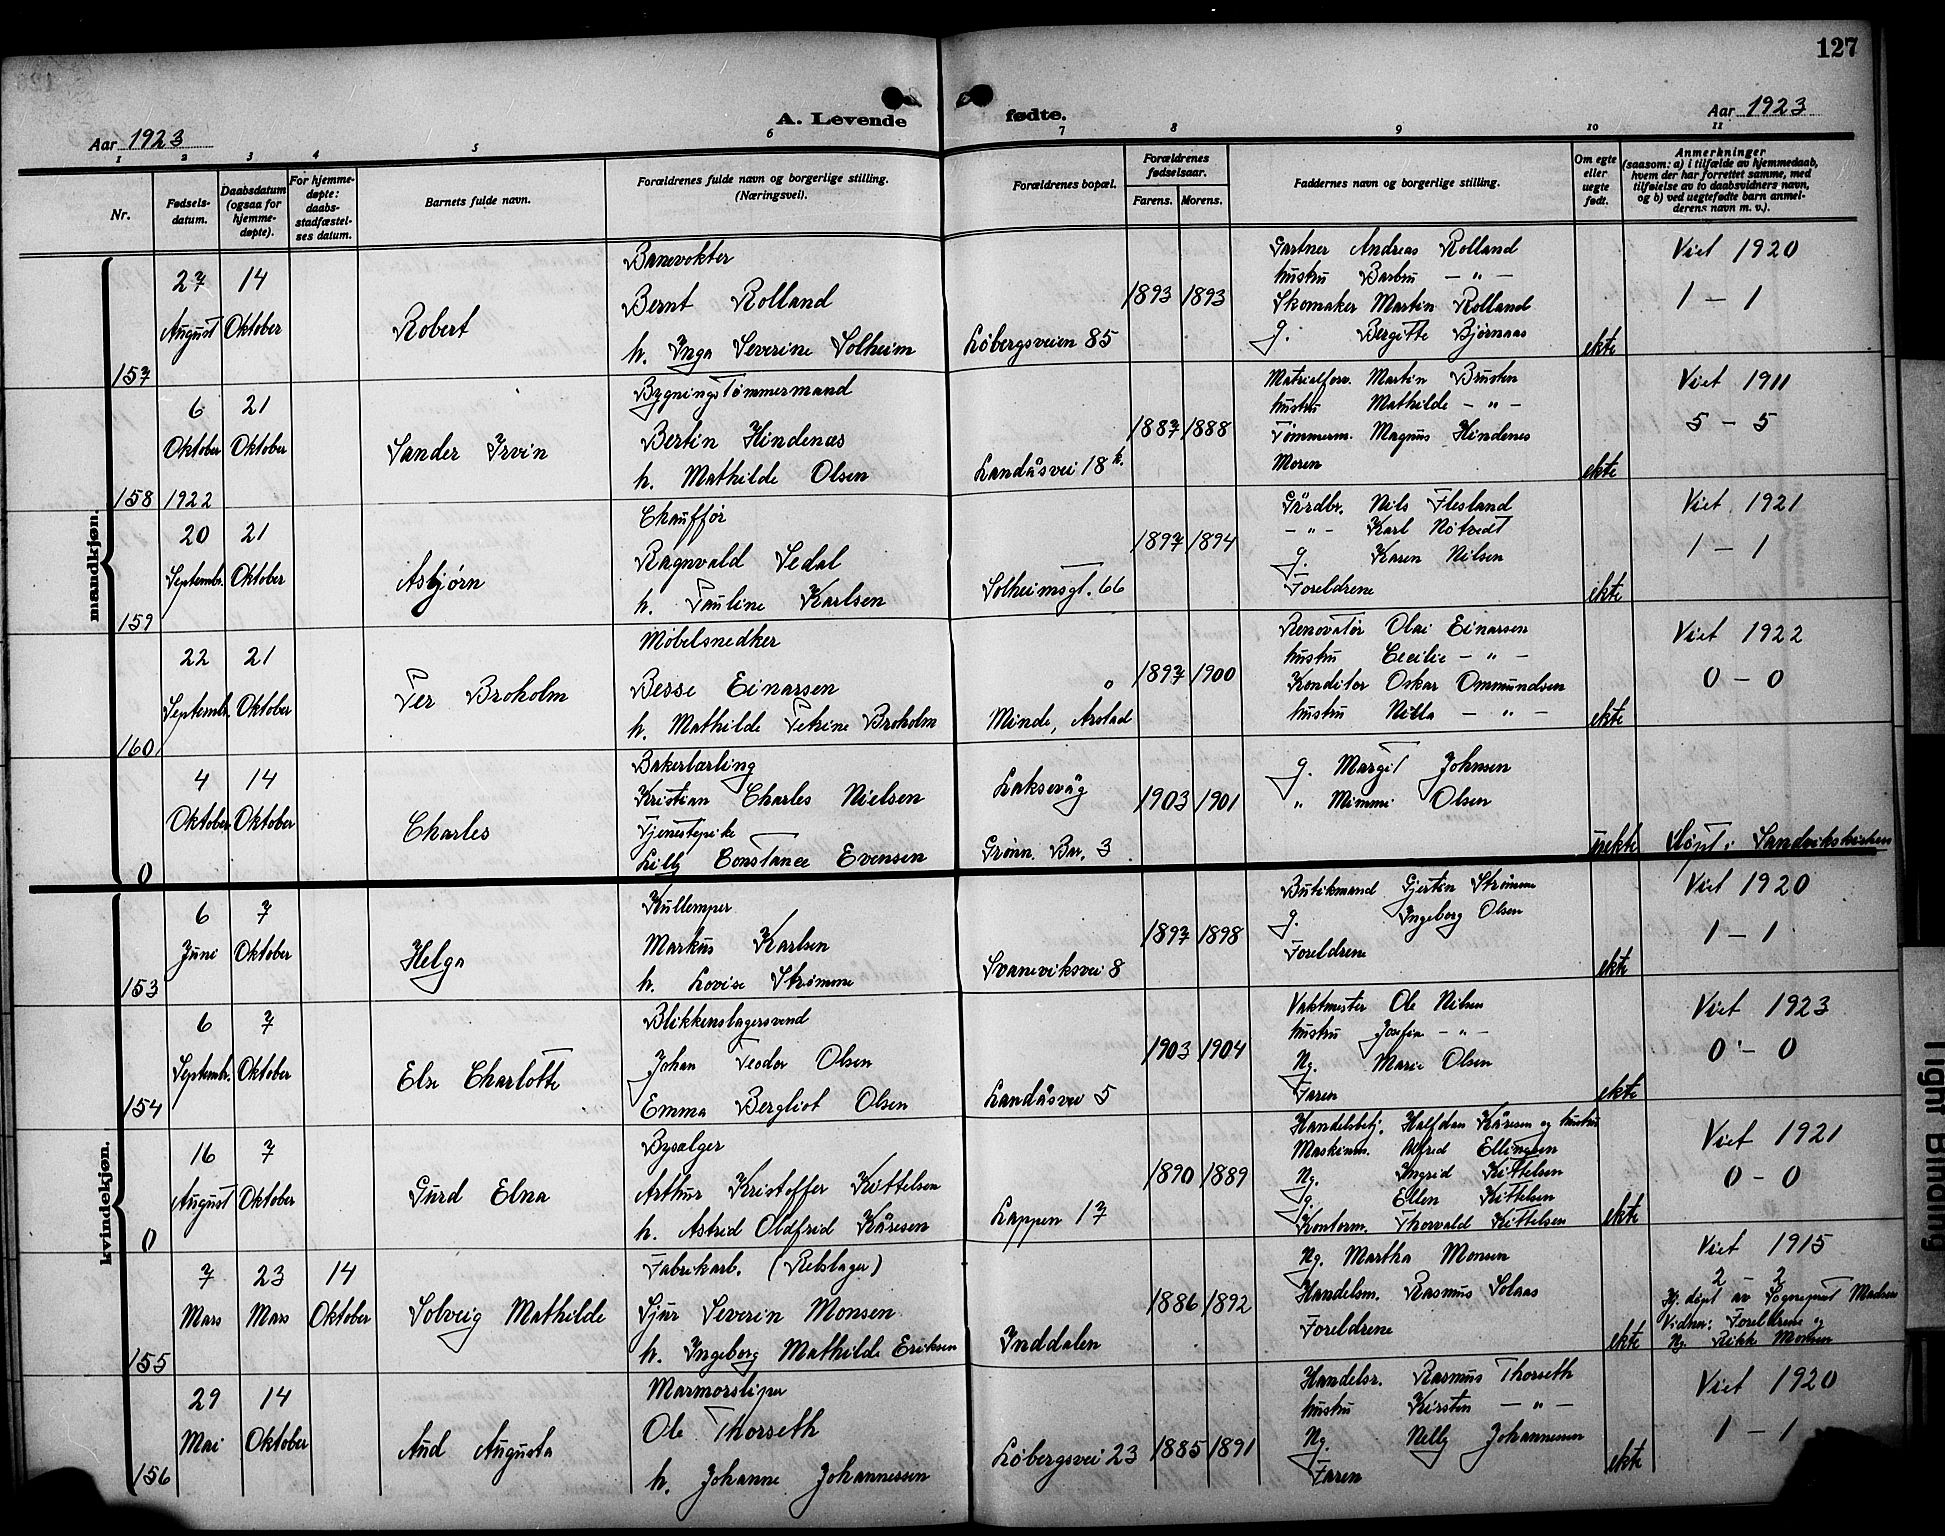 127
Aar 1923
A. Levende
fødte.
Aar 1923
1 2 3 4 5 6 7 8 9 10 11
Nr.
Fødsels-
datum.
Daabsdatum
(ogsaa for
hjemme-
døpte).
For hjemme-
døpte:
daabs-
stadfæstel-
ses datum.
Barnets fulde navn.
Forældrenes fulde navn og borgerlige stilling.
(Næringsvei).
Forældrenes bopæl.
Forældrenes
fødselsaar.
Farens. Morens.
Faddernes navn og borgerlige stilling.
Om egte
eller
uegte
født.
Anmerkninger
(saasom: a) i tilfælde av hjemmedaab,
hvem der har forrettet samme, med
tilføielse av to daabsvidners navn,
og b) ved uegtefødte barn anmel-
derens navn m. v.).
mandkjøn.
157
27
August
14
Oktober
Robert
Banevokter
Bernt Rolland
h. Inga Severine Solheim
Løbergsveien 85
1893 1893
Gartner Andreas Rolland
hustru Barbru — " —
Skomaker Martin Rolland
g. Bergitte Bjørnaas
ekte
Viet 1920
1 — 1
158
6
Oktober
1922
21
Oktober
Sander Irvin
Bygnings Tømmermand
Bertin Hindenæs
h. Mathilde Olsen
Landåsvei 18 k.
1887 1888
Matrialforv. Martin Brusten
hustru Mathilde — " —
Tømmerm. Magnus Hindenes
Moren
ekte
Viet 1911
5 — 5
159
20
Septembr.
21
Oktober
Asbjørn
Chauffør
Ragnvald Sedal
h. Pauline Karlsen
Solheimsgt. 66
1897 1894
Gårdbr. Nils Flesland
— " — Karl Nøtvedt
g. Karen Nilsen
Foreldrene
ekte
Viet 1921
1 — 1
160
22
Septemb.
21
Oktober
Per Broholm
Møbelsnedker
Besse Einarsen
h. Mathilde Petrine Broholm
Minde, Årstad
1897 1900
Renovatør Olai Einarsen
hustru Cecilie — " —
Konditor Oskar Ommundsen
hustru Nilla — " —
ekte
Viet 1922
0 — 0
0
4
Oktober
14
Oktober
Charles
Bakerlærling
Kristian Charles Nielsen
Tjenestepike
Lilly Constance Evensen
Laksevåg
Grønn. Bar. 3
1903 1901
g. Margit Johnsen
" Mimmi Olsen
uekte
Døpt i Sandvikskirken
kvindekjøn.
153
6
Juni
7
Oktober
Helga
Kullemper
Markus Karlsen
h. Lovise Strømme
Svaneviksvei 8
1897 1898
Butikmand Gjertin Strømme
g. Ingeborg Olsen
Foreldrene
ekte
Viet 1920
1 — 1
154
6
Septemb.
7
Oktober
Else Charlotte
Blikkenslagersvend
Johan Teodor Olsen
Emma Bergliot Olsen
Landåsvei 5
1903 1904
Vaktmester Ole Nilsen
hustru Josefin — " —
Ng. Marie Olsen
Faren
ekte
Viet 1923
0 — 0
0
16
August
7
Oktober
Gurd Elna
Bysælger
Arthur Kristoffer Kittelsen
h. Astrid Oldfrid Kåresen
Lappen 17
1890 1889
Handelsbetj. Halfdan Kåresen og hustru
Maskinm. Alfred Ellingsen
Ng. Ingrid Kittelsen
g. Ellen Kittelsen
Kontorm. Thorvald Kittelsen
ekte
Viet 1921
0 — 0
155
7
Mars
23
Mars
14
Oktober
Solveig Mathilde
Fabrikarb. (Rebslager)
Sjur Severin Monsen
h. Ingeborg Mathilde Eriksen
Inddalen
1886 1892
Ng. Martha Monsen
Handelsm. Rasmus Solaas
Foreldrene
ekte
Viet 1915
2 — 2
Hj. døpt av Sogneprest Madsen
Vidner: Foreldrene og
Ng. Rikk Monsen
156
29
Mai
14
Oktober
Aud Augusta
Marmorsliper
Ole Thorseth
h. Johanne Johannessen
Løbergsvei 23
1885 1891
Handelsr. Rasmus Thorseth
hustru Kirsten — " —
Ng. Nelly Johannessen
Faren
ekte
Viet 1920
1 — 1
Tight Binding